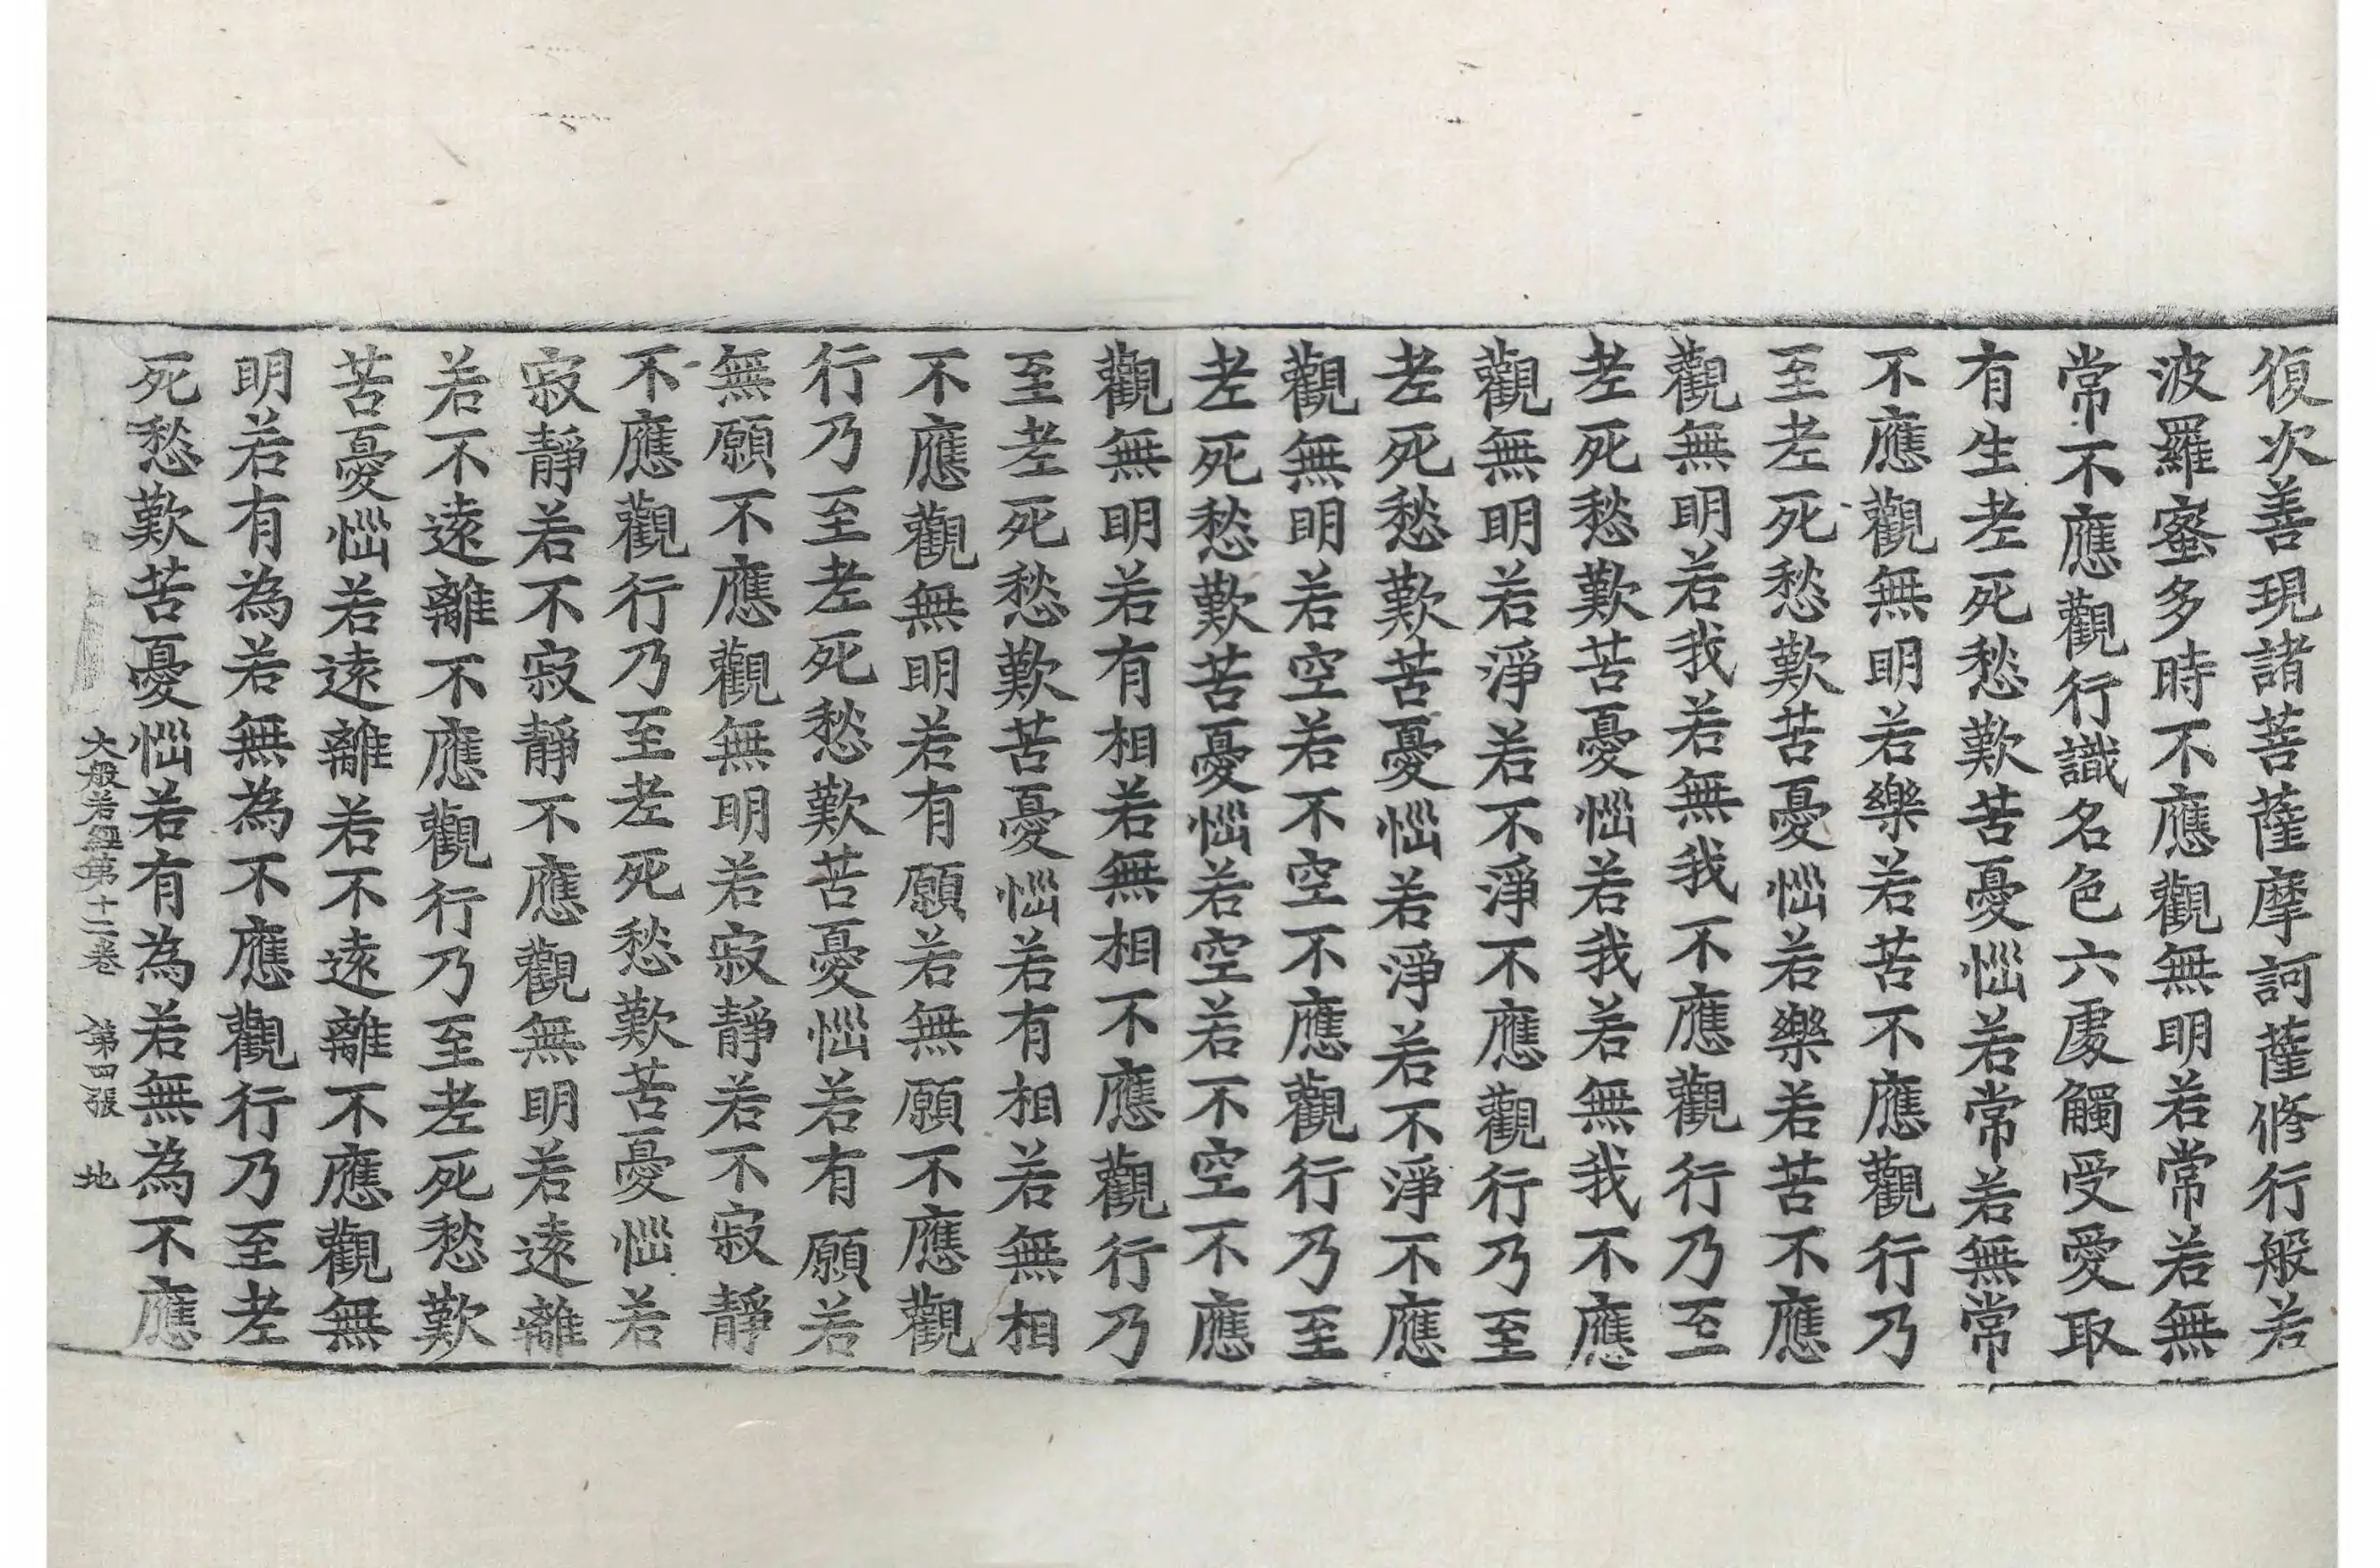 復次善現諸菩薩摩訶薩修行般若
波羅蜜多時不應觀無明若常若無
常不應觀行識名色六處觸受愛取
有生老死愁歎苦憂惱若常若無常
不應觀無明若樂若苦不應觀行乃
至老死愁歎苦憂惱若樂若苦不應
觀無明若我若無我不應觀行乃至
老死愁歎苦憂惱若我若無我不應
觀無明若淨若不淨不應觀行乃至
老死愁歎苦憂惱若淨若不淨不應
觀無明若空若不空不應觀行乃至
老死愁歎苦憂惱若空若不空不應
觀無明若有相若無相不應觀行乃
至老死愁歎苦憂惱若有相若無相
不應觀無明若有願若無願不應觀
行乃至老死愁歎苦憂惱若有願若
無願不應觀無明若寂靜若不寂靜
不應觀行乃至老死愁歎苦憂惱若
寂靜若不寂靜不應觀無明若遠離
若不遠離不應觀行乃至老死愁歎
苦憂惱若遠離若不遠離不應觀無
明若有為若無為不應觀行乃至老
死愁歎苦憂惱若有為若無為不應
大般若經第十二卷 第四張 地